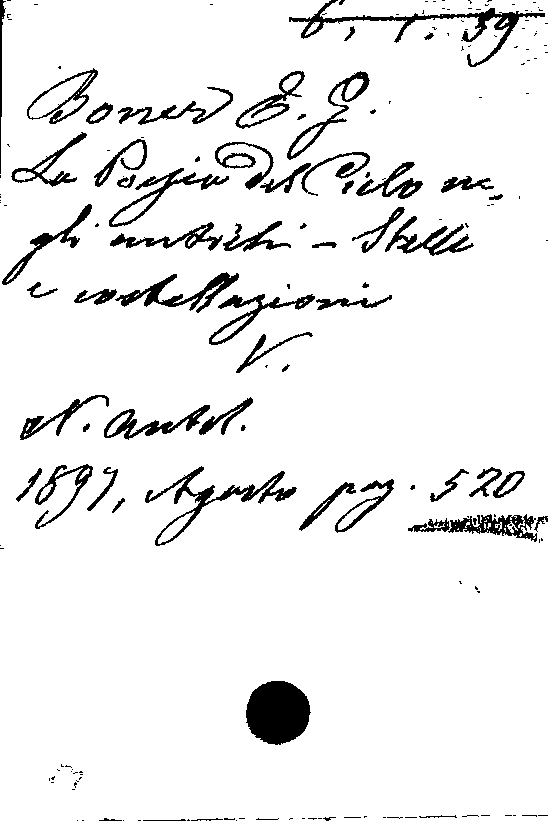 6. 1. 39
Boner E. G.
La Poesia del Cielo ne-
gli antichi - Stelle
e costellazioni
V.
N. Antol.
1897, Agosto pag. 520